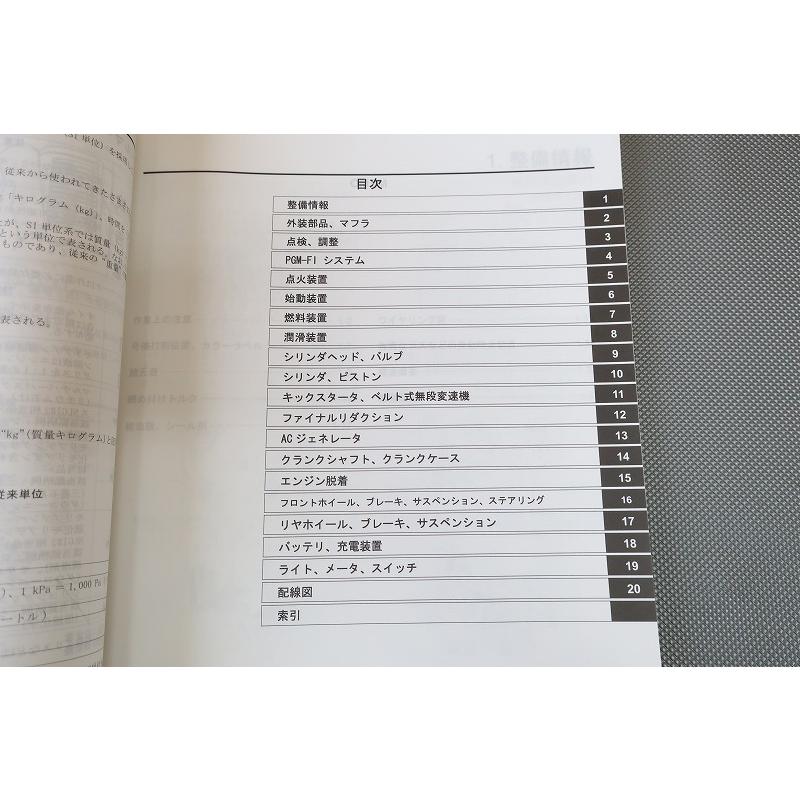 SI単位）を採用し
従来から使われてきた
「キログラム（kg）」、時間を
が、SI単位系では質量（kg
という単位で表される。
ものであり、従来の"重量"
表される。
"kg"(質量キログラム)と
従来単位
)、1 kPa = 1,000 Pa
ートル）
1. 整備情報
目次
整備情報 1
外装部品、マフラ 2
点検、調整 3
PGM-FI システム 4
点火装置 5
始動装置 6
燃料装置 7
潤滑装置 8
シリンダヘッド、バルブ 9
シリンダ、ピストン 10
キックスタータ、ベルト式無段変速機 11
ファイナルリダクション 12
ACジェネレータ 13
クランクシャフト、クランクケース 14
エンジン脱着 15
フロントホイール、ブレーキ、サスペンション、ステアリング 16
リヤホイール、ブレーキ、サスペンション 17
バッテリ、充電装置 18
ライト、メータ、スイッチ 19
配線図 20
索引